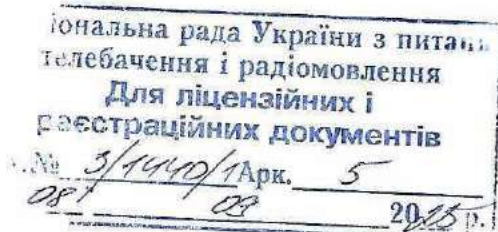 іональна рада України з питань
телебачення і радіомовлення
Для ліцензійних і
реєстраційних документів
№ 3/1440/1 Арк. 5
08 09 2015 р.